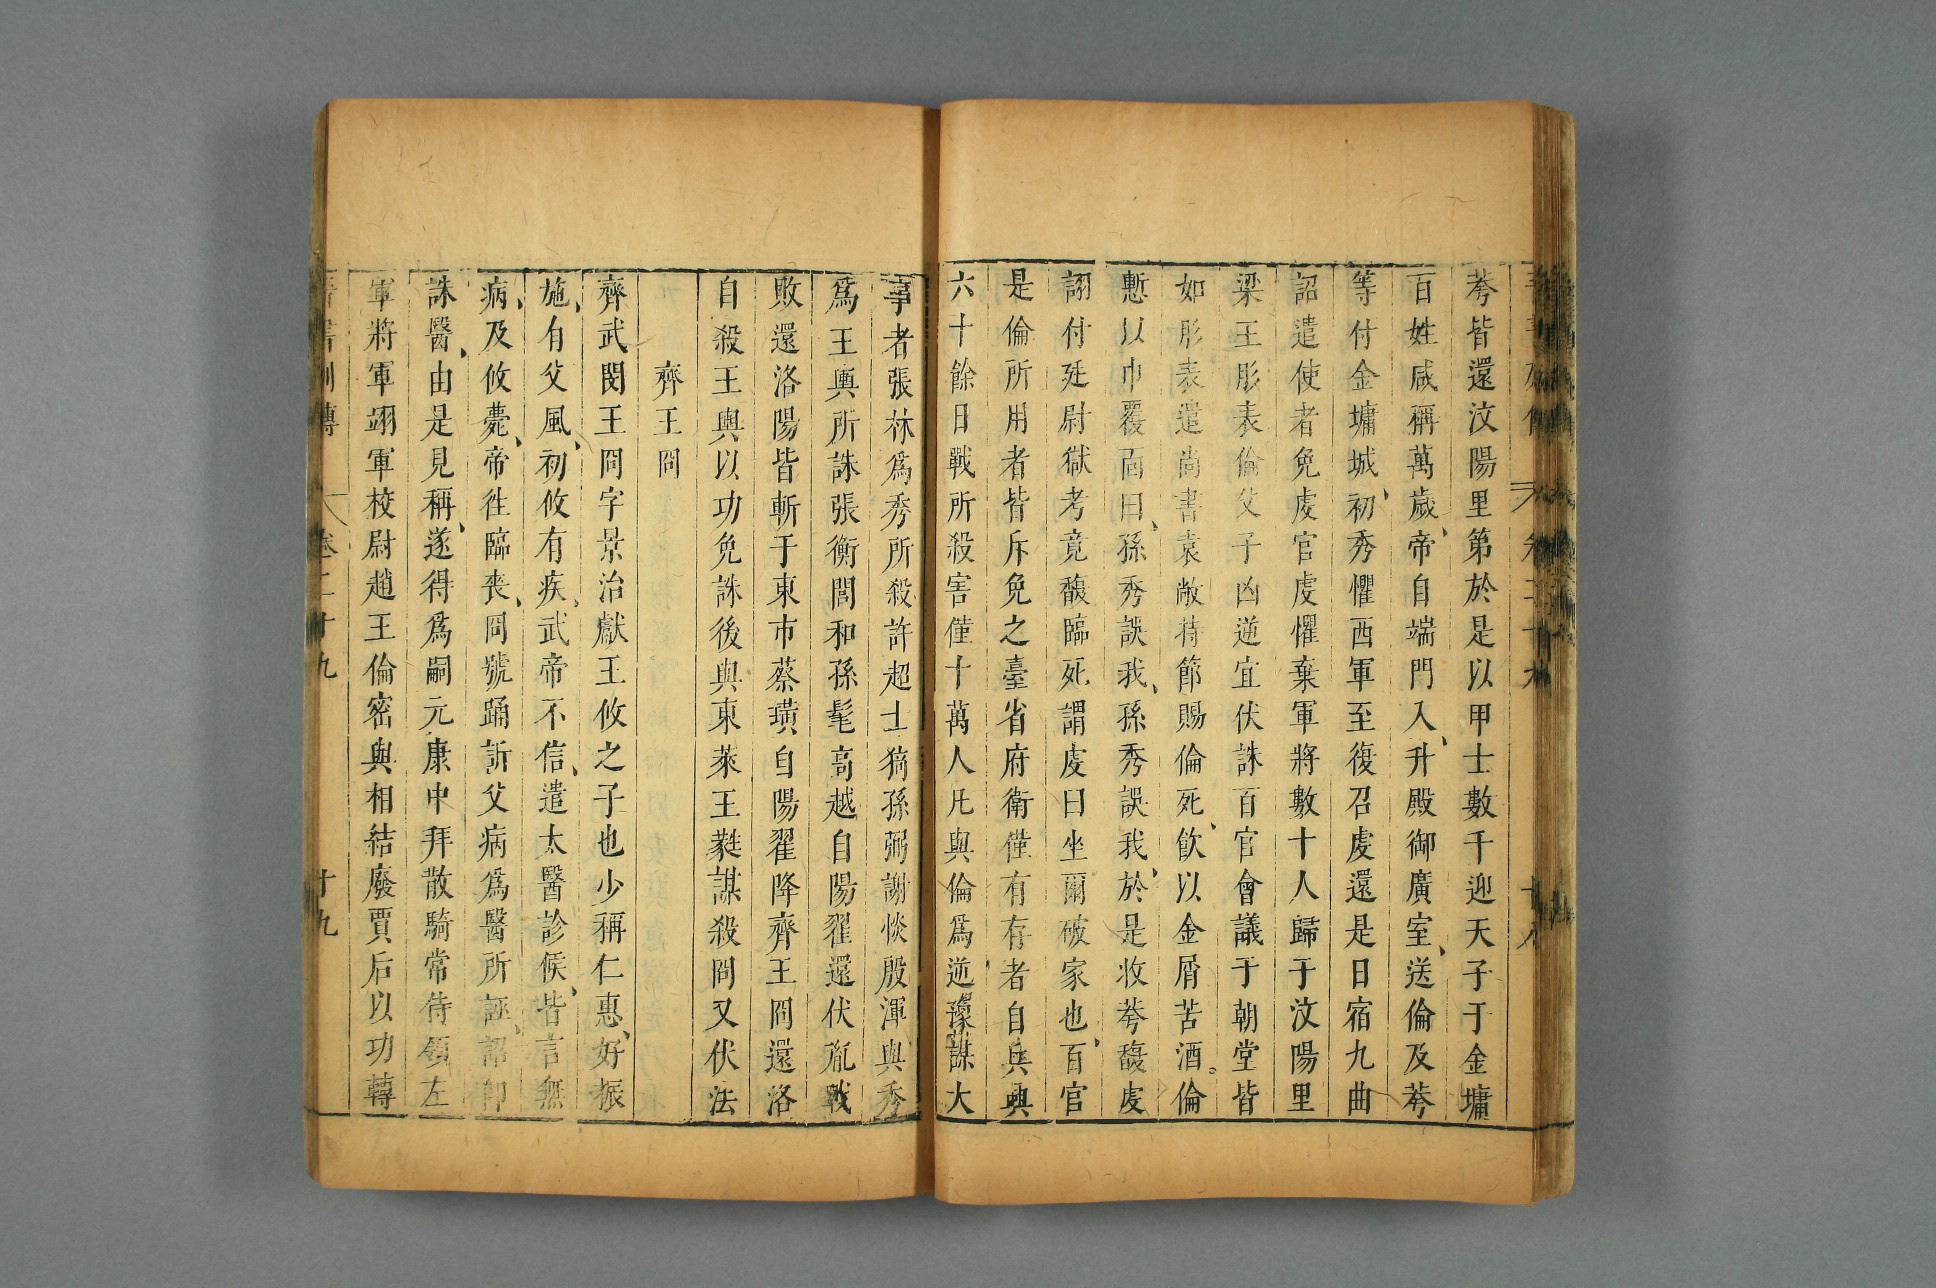 荂皆還汶陽里第於是以甲士數千迎天子于金墉
百姓咸稱萬歲帝自端門入升殿御廣室送倫及荂
等付金墉城初秀懼西軍至復召虔還是日宿九曲
詔遣使者免虔官虔懼棄軍將數十人歸于汶陽里
梁王肜表倫父子凶逆宜伏誅百官會議于朝堂皆
如肜表遣尚書袁敞持節賜倫死飲以金屑苦酒倫
慙以巾覆面曰孫秀誤我孫秀誤我於是收荂馥虔
詡付廷尉獄考竟馥臨死謂虔曰坐爾破家也百官
是倫所用者皆斥免之臺省府衛僅有存者自兵興
六十餘日戰所殺害僅十萬人凡與倫爲逆豫謀大
事者張林爲秀所殺許超士猗孫弼謝惔殷渾與秀
爲王輿所誅張衡閭和孫髦高越自陽翟還伏胤戰
敗還洛陽皆斬于東市蔡璜自陽翟降齊王冏還洛
自殺王輿以功免誅後與東萊王蕤謀殺冏又伏法
齊王冏
齊武閔王冏字景治獻王攸之子也少稱仁惠好振
施有父風初攸有疾武帝不信遣太醫診候皆言無
病及攸薨帝往臨喪冏號踊訴父病爲醫所誣詔卽
誅醫由是見稱遂得爲嗣元康中拜散騎常侍領左
軍將軍翊軍校尉趙王倫密與相結廢賈后以功轉
晉書列傳 卷二十九 十九